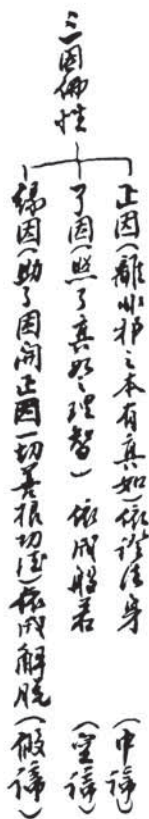 三因佛性
正因(離非邪之本有真如)依證法身(中諦)
了因(照了真如之理智)依成般若(空諦)
緣因(助了因開正因一切善根功德)依成解脫(假諦)